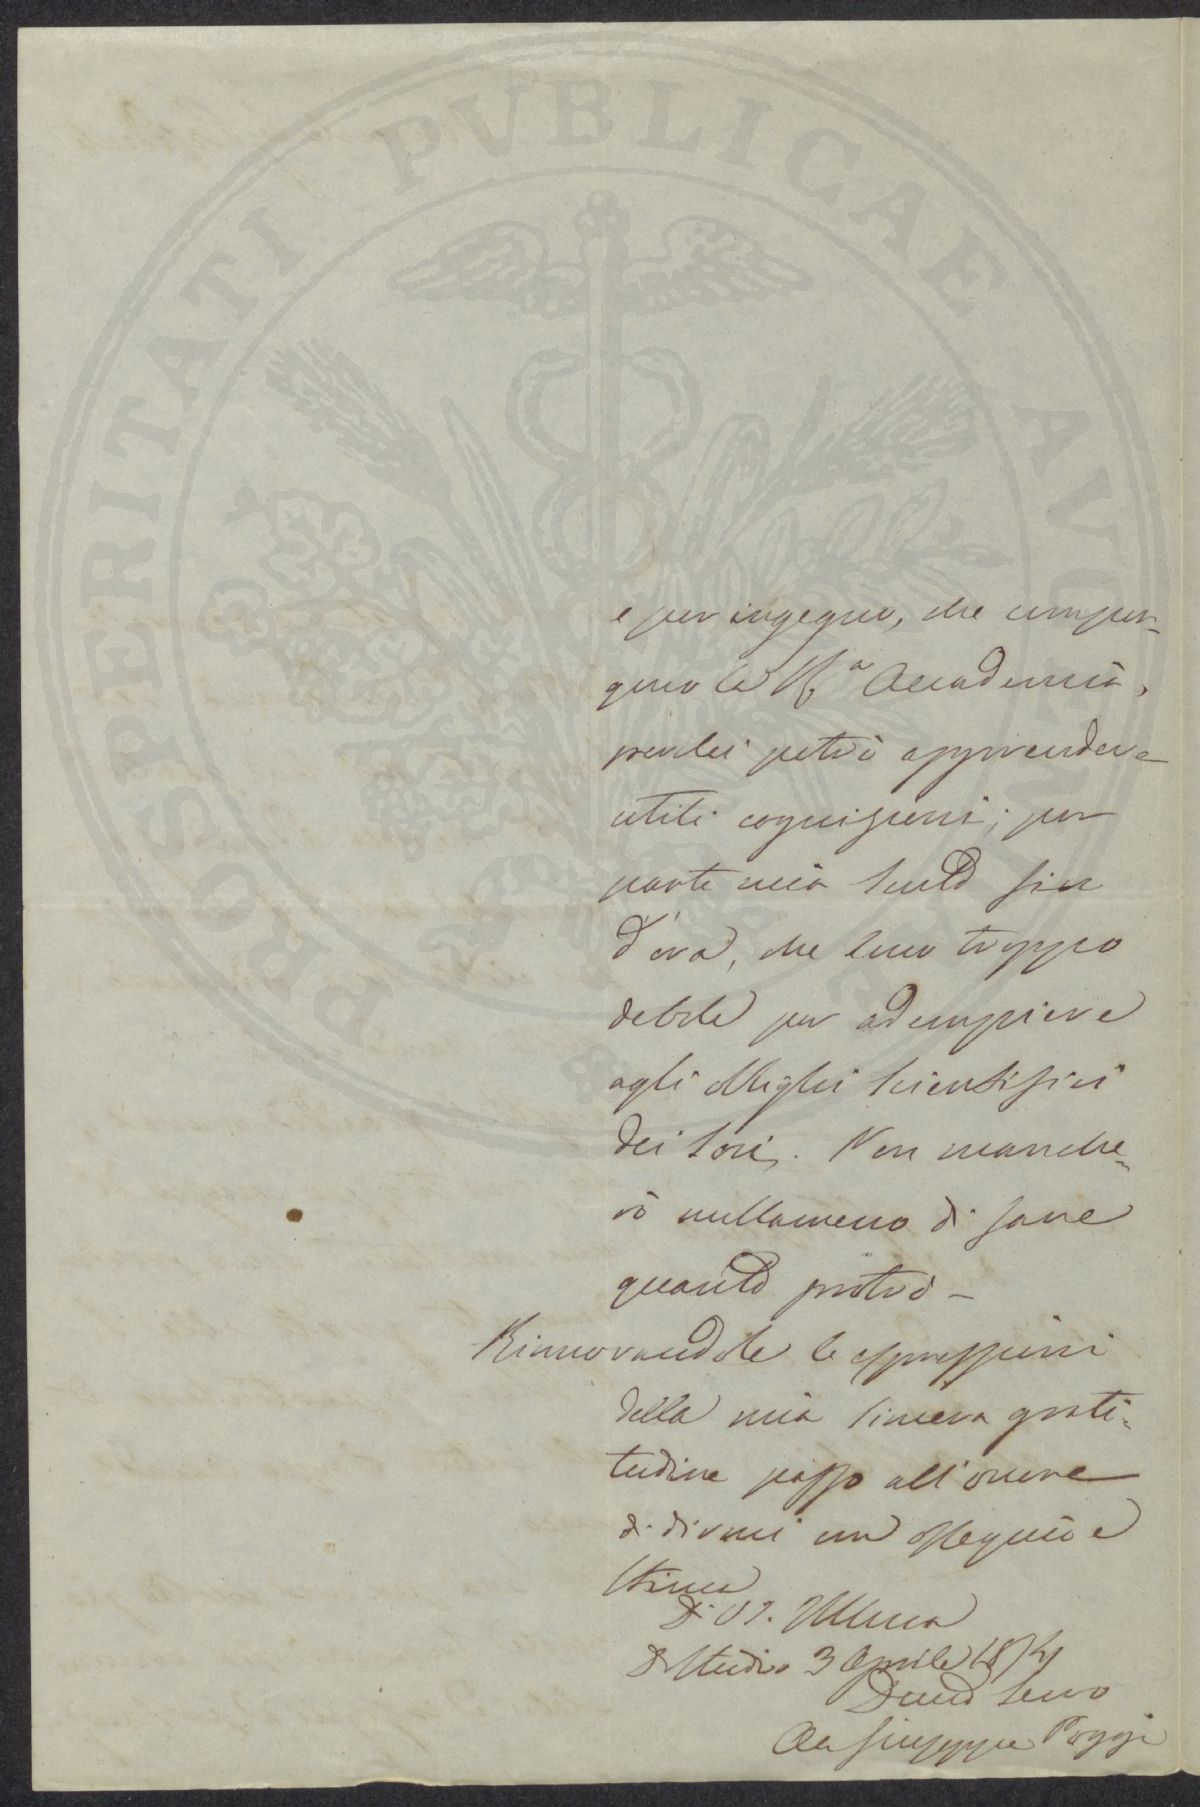 PROSPERITATI PUBLICAE AUGENDAE
e per ingegno, che compon-
gono la R.a Accademia,
perchè potrò apprendere
utili cognizioni; per
parte mia sento fin
d'ora, che sono troppo
debole per adempiere
agli obblighi scientifici
dei soci. Non manche-
rò nullameno di fare
quanto potrò -
Rinnovandole le espressioni
della mia sincera grati-
tudine passo all'onore
di dirmi con ossequio e
stima
Di V. S. Illma
D Studio 3 Aprile 1874
Servo
Giuseppe Poggi